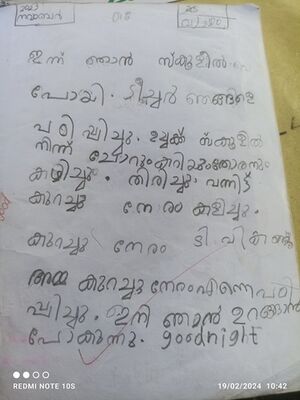 2023
നവംബർ
015
25
ഇന്ന് ഞാൻ സ്കൂളിൽ
പോയി. ടീച്ചർ ഞങ്ങളെ
പഠിപ്പിച്ചു. ഉച്ചക്ക് സ്കൂളിൽ
നിന്ന് ചോറുംകറിയുംതോരനും
കഴിച്ചു. തിരിച്ചു വന്നിട്ട്
കുറച്ചു നേരം കളിച്ചു.
കുറച്ചു നേരം ടി വി കണ്ടു
അമ്മ കുറച്ചുനേരംഎന്നെപഠി
പ്പിച്ചു. ഇനി ഞാൻ ഉറങ്ങാൻ
പോകുന്നു. goodnight
REDMI NOTE 10S
19/02/2024 10:42